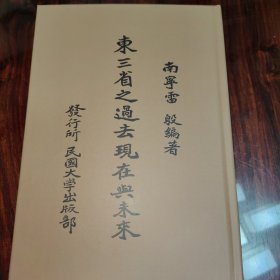 南寧雷殷編著
東三省之過去現在與未來
發行所 民國大學出版部